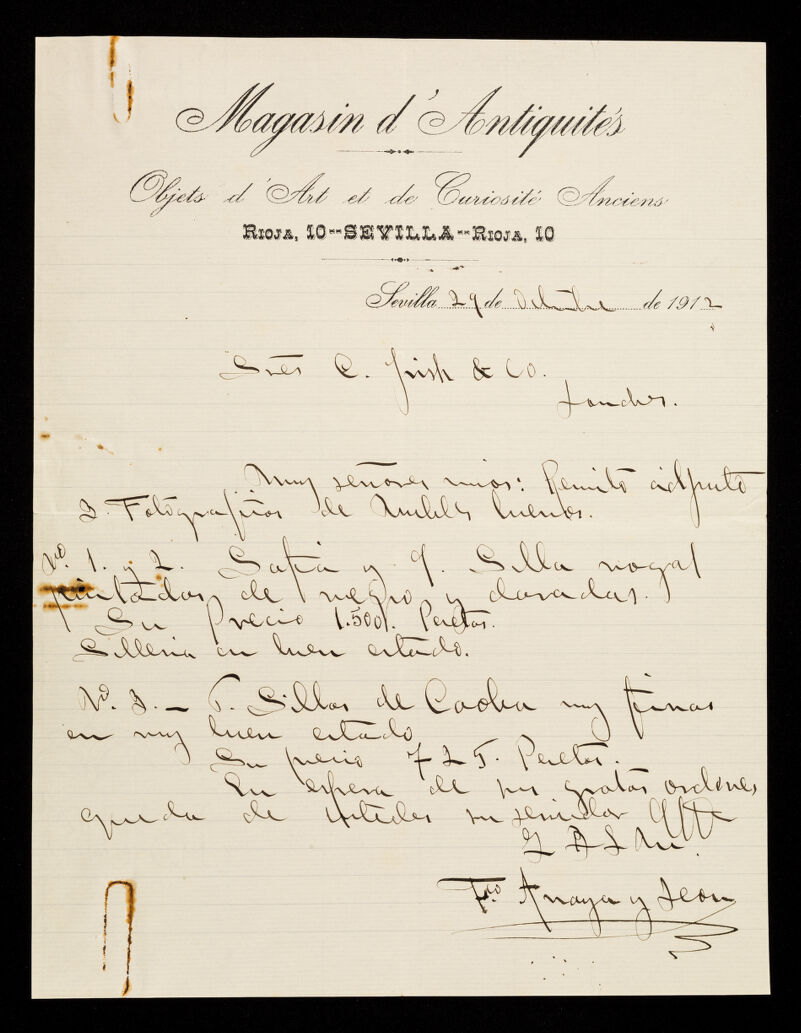 Magasin d'Antiquités
Objets d'Art et de Curiosité Anciens
Rioja, 10--SEVILLA--Rioja, 10
Sevilla 29 de Octubre de 1912
Sres C. Frish & Co.
Londres.
Muy señores mios: Remito adjunto
3. Fotografias de Muebles buenos.
No. 1. y 2. Sofia y 9. Silla nogal
pintadas de negro y doradas.
Su Precio 1.500. Pesetas.
Silleria en buen estado.
No. 3. — 5. Sillas de Caoba muy finas
en muy buen estado
Su precio 725. Pesetas.
En espera de sus gratas ordenes
queda de ustedes su servidor
Fco. Anaya y Leon